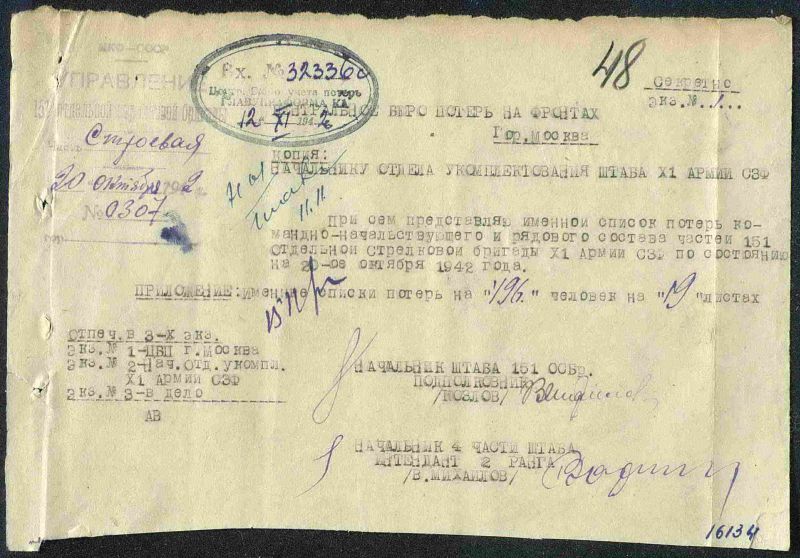 НКО-СССР
УПРАВЛЕНИЕ
Вх. № 32336с
Центр. Бюро учета потерь
ГЛАВУПРАФОРМА КА
12 XI 194 2
48
Секретно
экз.№ 1...
ЦЕНТРАЛЬНОЕ БЮРО ПОТЕРЬ НА ФРОНТАХ
Гор.Москва
Часть Строевая
20 октября 194 2 г.
№ 0307
гор.
копия:
НАЧАЛЬНИКУ ОТДЕЛА УКОМПЛЕКТОВАНИЯ ШТАБА Х1 АРМИИ СЗФ
11.11.
При сем представляю именной список потерь ко-
мандно-начальствующего и рядового состава частей 151
Отдельной Стрелковой бригады Х1 Армии СЗФ по состоянию
на 20-ое октября 1942 года.
ПРИЛОЖЕНИЕ: Именные списки потерь на "196" человек на "19" листах
Отпеч.в 3-х экз.
экз.№ 1-ЦБП г.Москва
экз.№ 2-Нач.Отд.укомпл.
Х1 Армии СЗФ
экз.№ 3-в дело
АВ
НАЧАЛЬНИК ШТАБА 151 ОСБр.
ПОДПОЛКОВНИК
/КОЗЛОВ/
НАЧАЛЬНИК 4 ЧАСТИ ШТАБА
ИНТЕНДАНТ 2 РАНГА
/В.МИХАЙЛОВ/
16134